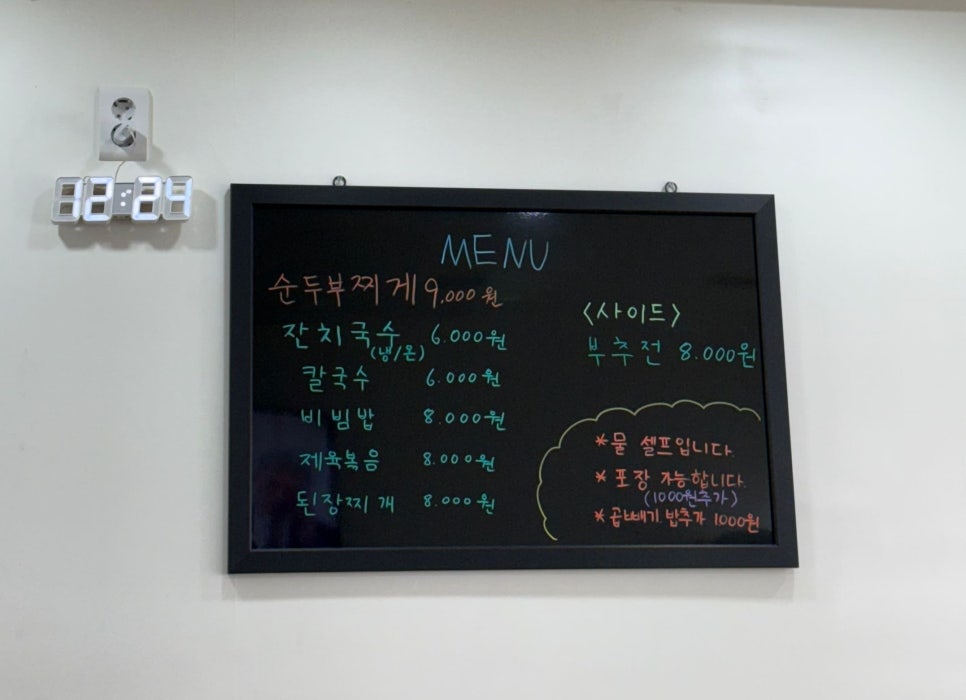 12:24
MENU
순두부찌게 9.000원
잔치국수 6.000원
(냉/온)
칼국수 6.000원
비빔밥 8.000원
제육볶음 8.000원
된장찌개 8.000원
<사이드>
부추전 8.000원
*물 셀프입니다.
*포장 가능합니다.
(1000원추가)
*곱빼기.밥추가 1000원